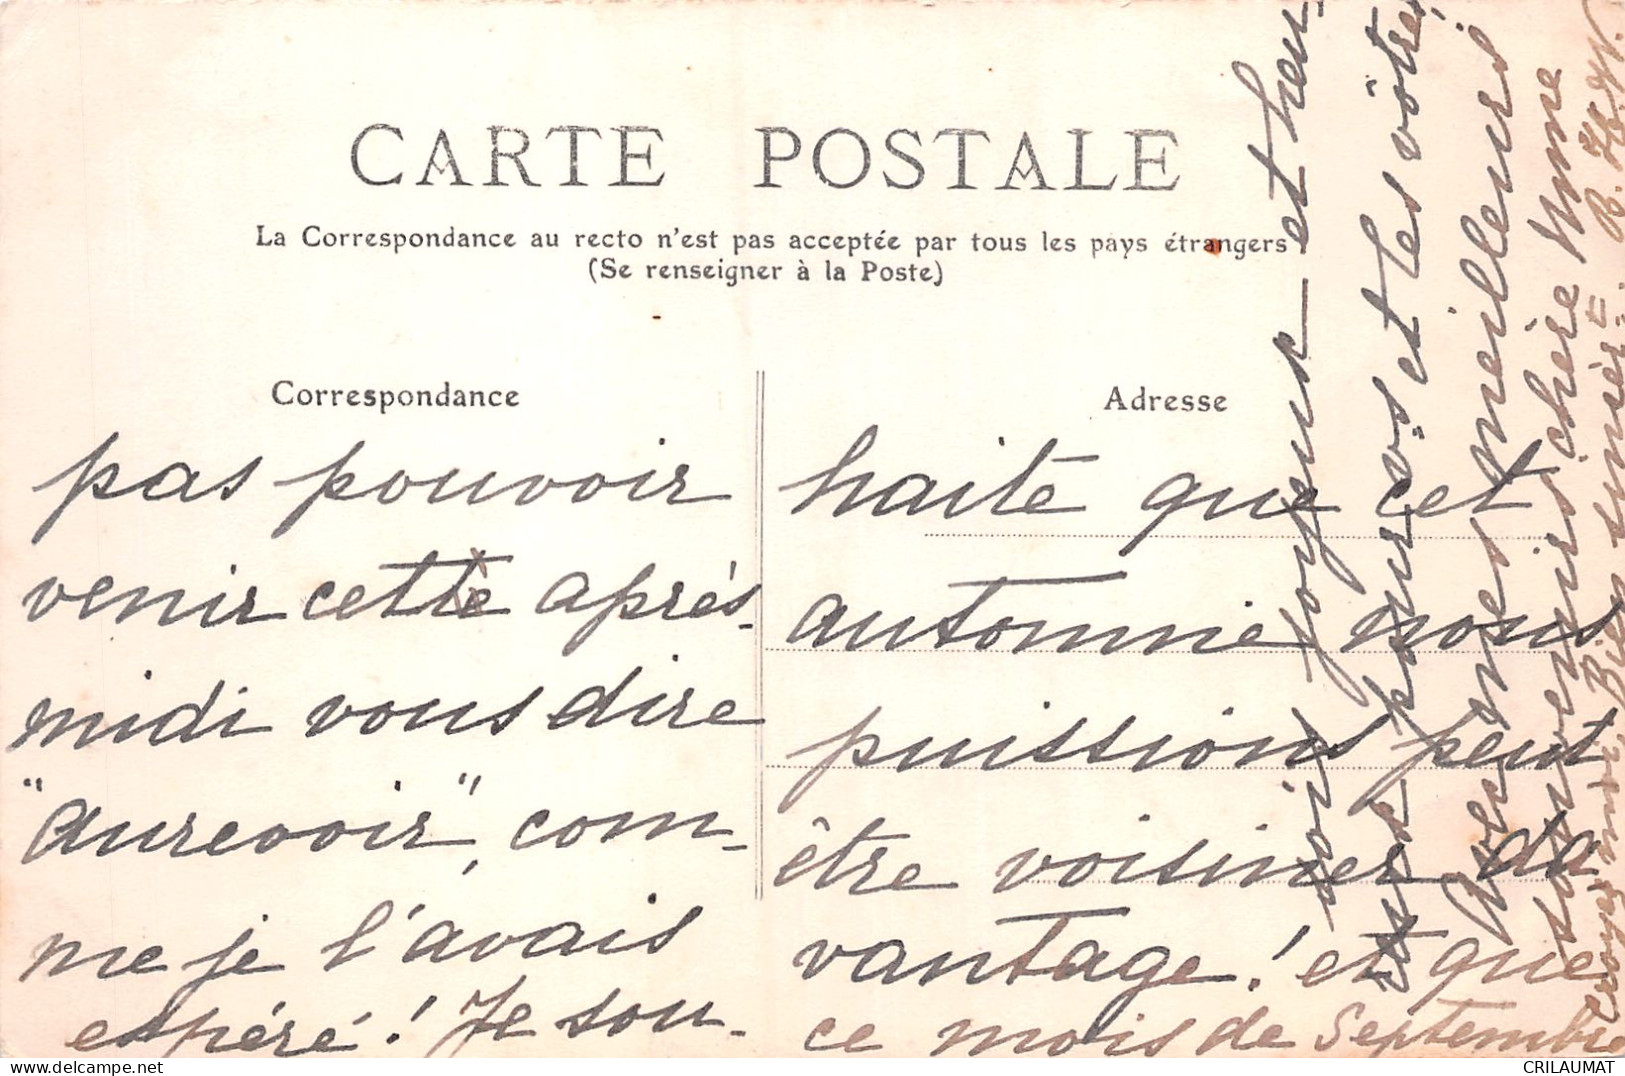 CARTE POSTALE
La Correspondance au recto n'est pas acceptée par tous les pays étrangers
(Se renseigner à la Poste)
Correspondance
Adresse
pas pouvoir
venir cette après-
midi vous dire
"aurevoir", com-
me je l'avais
espéré! Je sou-
haite que cet
automne nous
puissions peut
être voisiner da
vantage! et que
ce mois de Septembre
soit joyeux et heu-
reux pour vos et les vôtres
Avec mes meilleurs
souvenirs chère Mme
croyez moi "Bien sincèrt"
R. H. W.
delcampe.net
CRILAUMAT